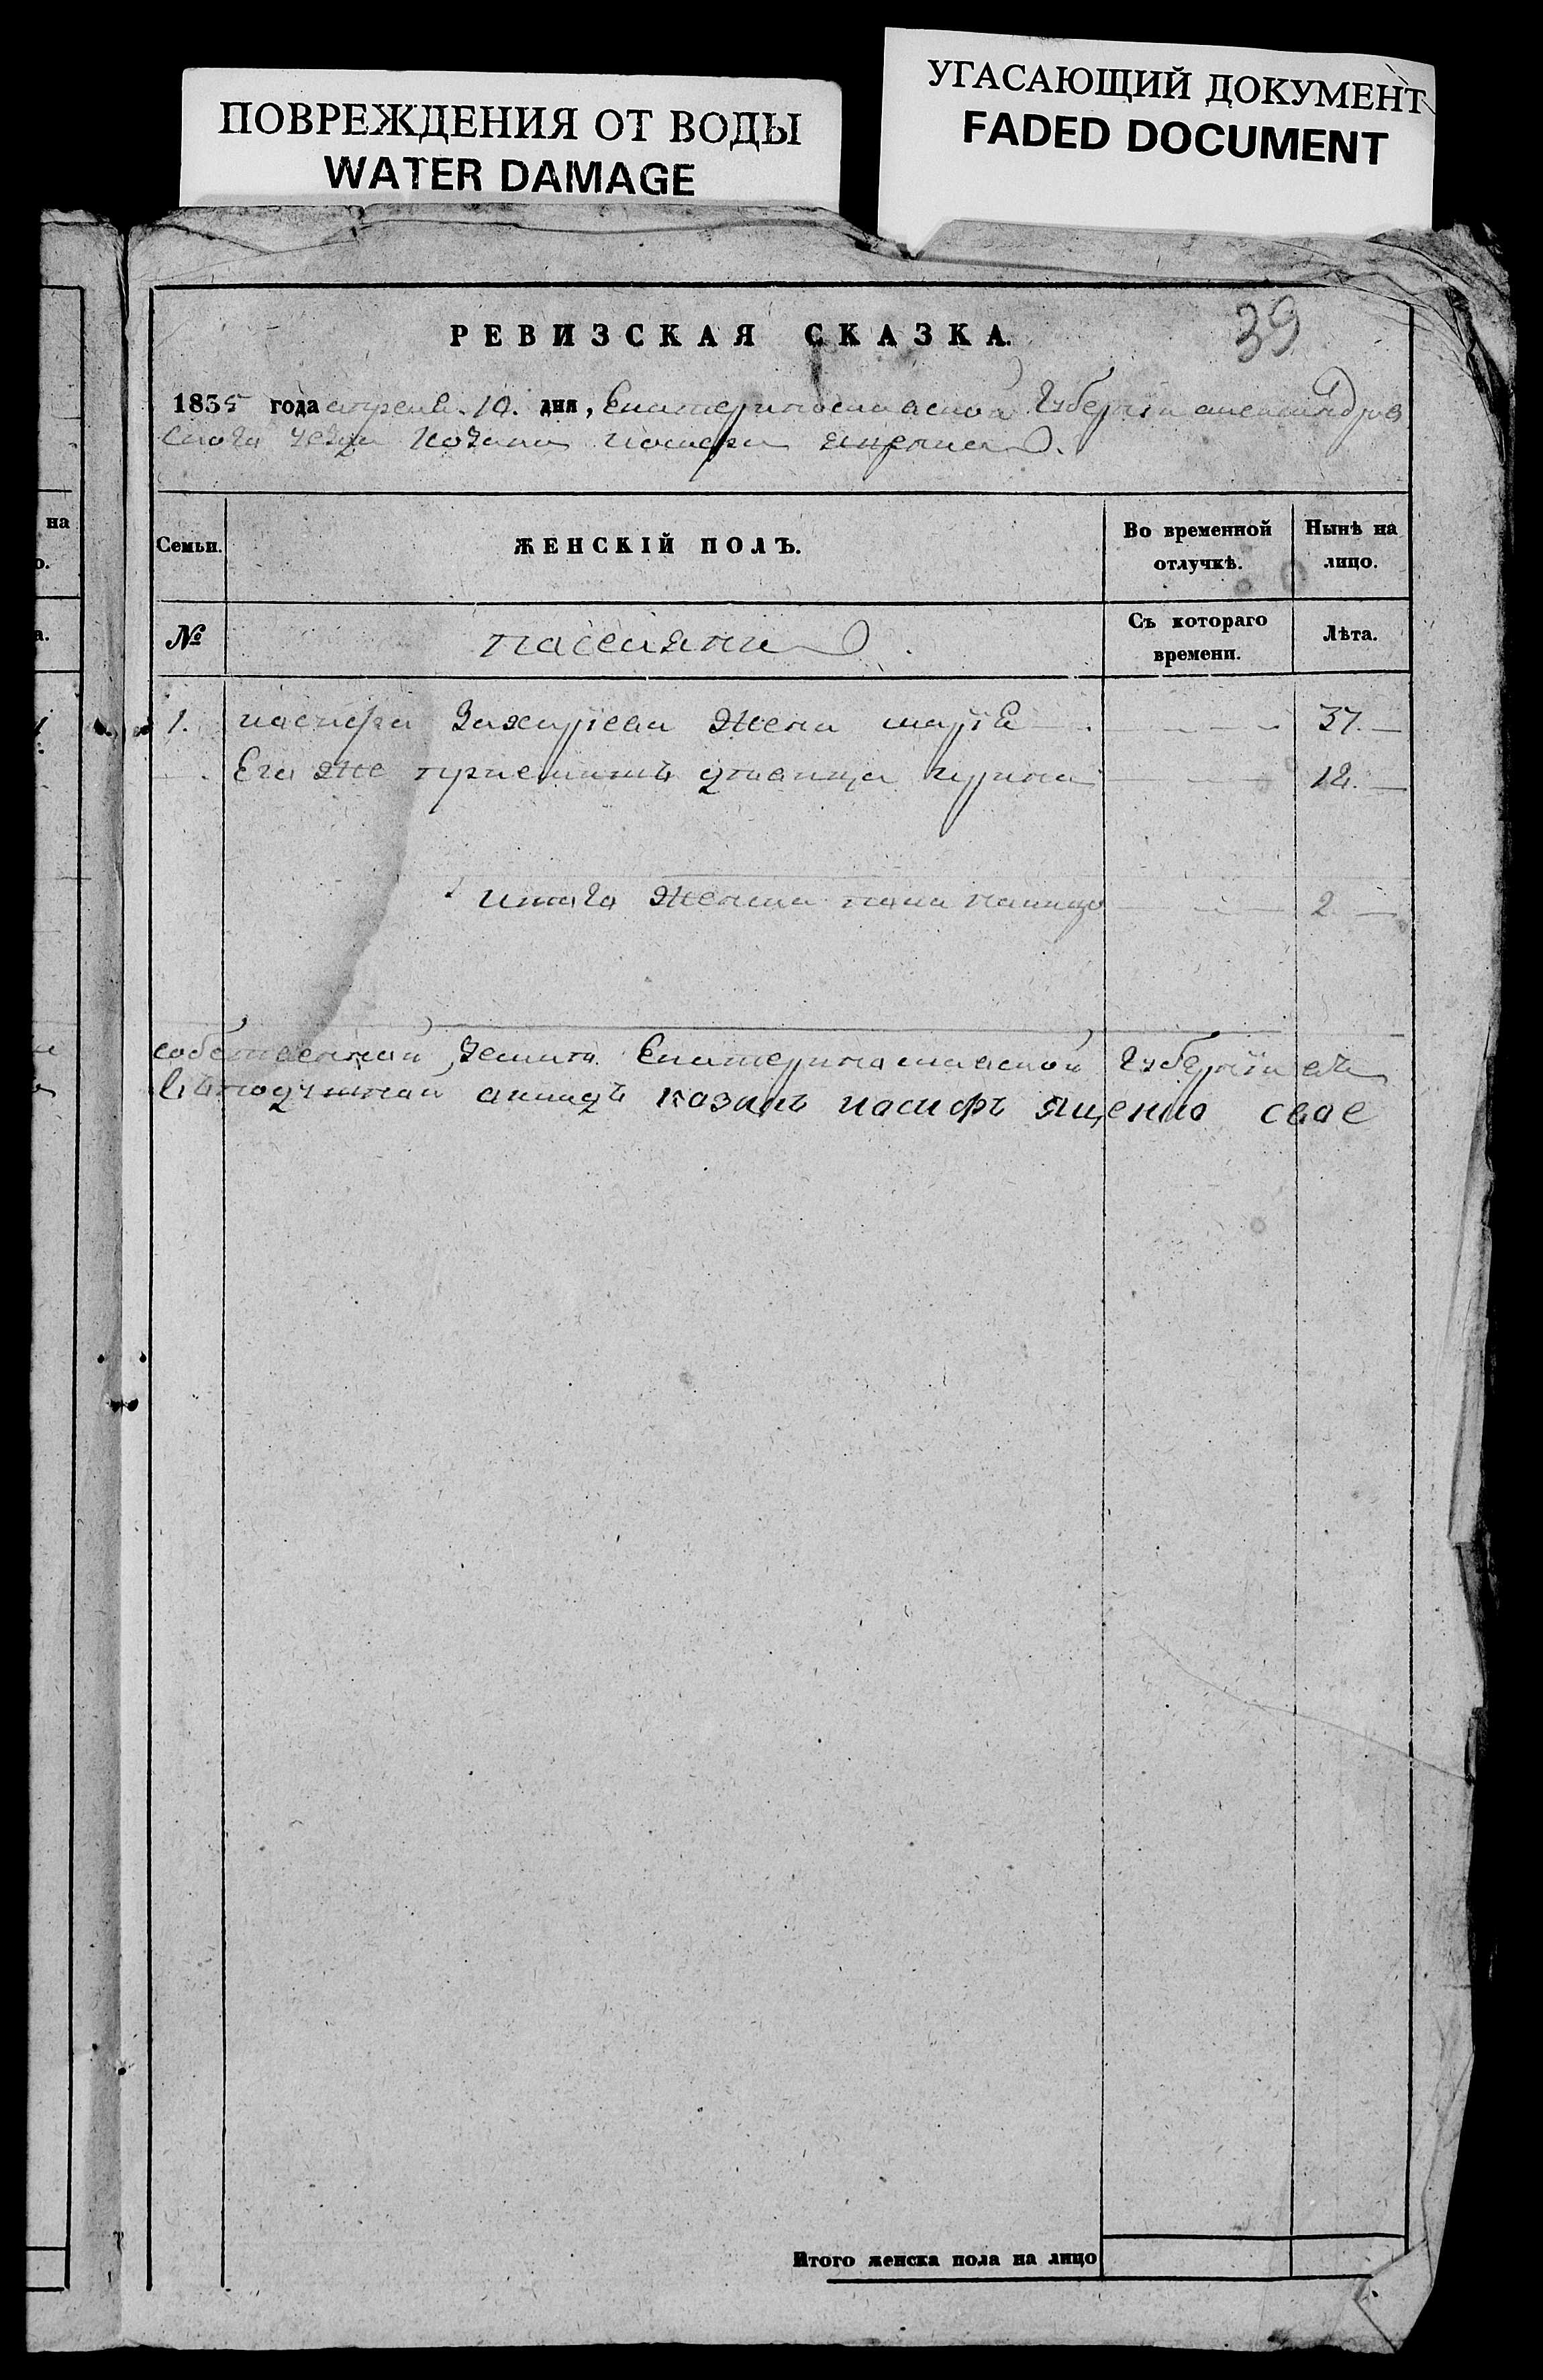 ПОВРЕЖДЕНИЯ ОТ ВОДЫ
WATER DAMAGE
УГАСАЮЩИЙ ДОКУМЕНТ
FADED DOCUMENT
39
РЕВИЗСКАЯ СКАЗКА.
1835 года апреля 10. дня, Екатеринославской Губернiи александров
ского уезда
на
о.
а.
Семьи.
ЖЕНСКІЙ ПОЛЪ.
Во временной отлучкѣ.
Нынѣ на лицо.
№
поселяни
Съ котораго времени.
Лѣта.
1. иосифа Захарiева жена марiя 37.
Его же ирина 12.
итого женска пола налицо 2
Екатеринославской Губернiи
козакъ иосифъ Яценко свое
Итого женска пола на лицо